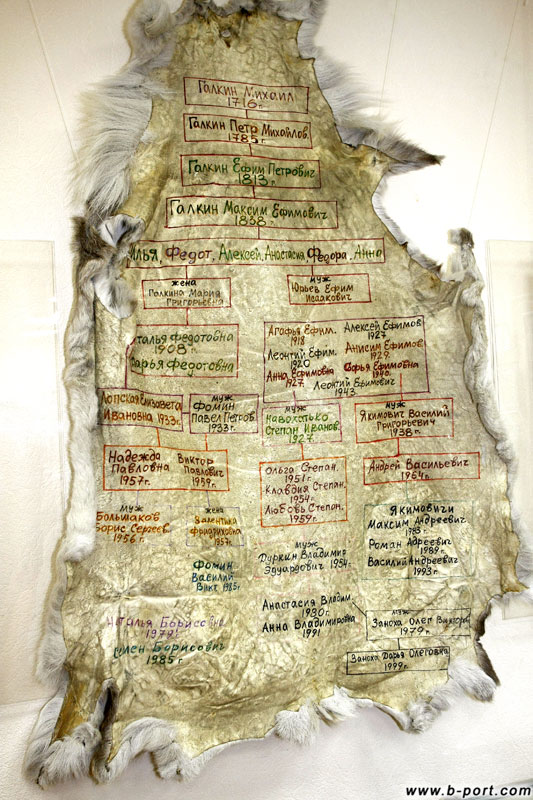 Галкин Михаил
1716 г.
Галкин Петр Михайлов.
1785 г.
Галкин Ефим Петрович
1813 г.
Галкин Максим Ефимович
1838 г.
Илья, Федот, Алексей, Анастасия, Федора, Анна
жена
Галкина Мария
Григорьевна
муж
Юрьев Ефим
Исаакович
талья Федотовна
1908 г.
Дарья Федотовна
Агафья Ефим.
1918
Леонтий Ефим.
1920
Анна Ефимовна
1927
Алексей Ефимов
1927
Анисим Ефимов
1929
Дарья Ефимовна
1940
Леонтий Ефимович
1943
Лопская Елизавета
Ивановна 1933 г.
муж
Фомин
Павел Петров.
1933 г.
муж
Навохотько
Степан Иванов.
1927
муж
Якимович Василий
Григорьевич
1938 г.
Надежда
Павловна
1957 г.
Виктор
Павлович
1959 г.
Ольга Степан.
1951 г.
Клавдия Степан.
1954 г.
Любовь Степан.
1959 г.
Андрей Васильевич
1964 г.
муж
Большаков
Борис Сергеев.
1956 г.
жена
Валентина
1957 г.
Фомин
Василий
Викт. 1985 г.
муж
Дуркин Владимир
Эдуардович 1954 г.
Якимовичи
Максим Андреевич
1985 г.
Роман Адреевич
1989 г.
Василий Андреевич
1993 г.
Наталья Борисовна
1979 г.
Борисович
1985 г.
Анастасия Владим.
Анна Владимировна
1991
муж
Заноха Олег Викторов.
1979 г.
Заноха Дарья Олеговна
1999 г.
www.b-port.com